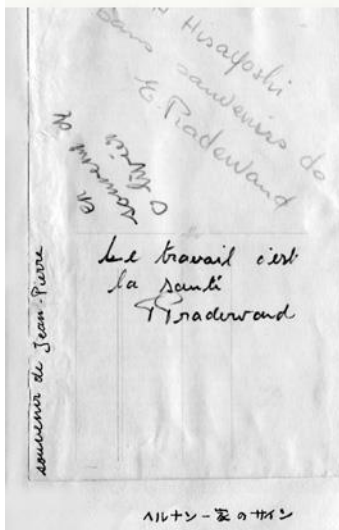 Hisayoshi
bons souvenirs de
E. Pradervand
en
souvenir de
Olivier
Le travail c'est
la santé
Pradervand
souvenir de Jean-Pierre
ヘルナン一家のサイン